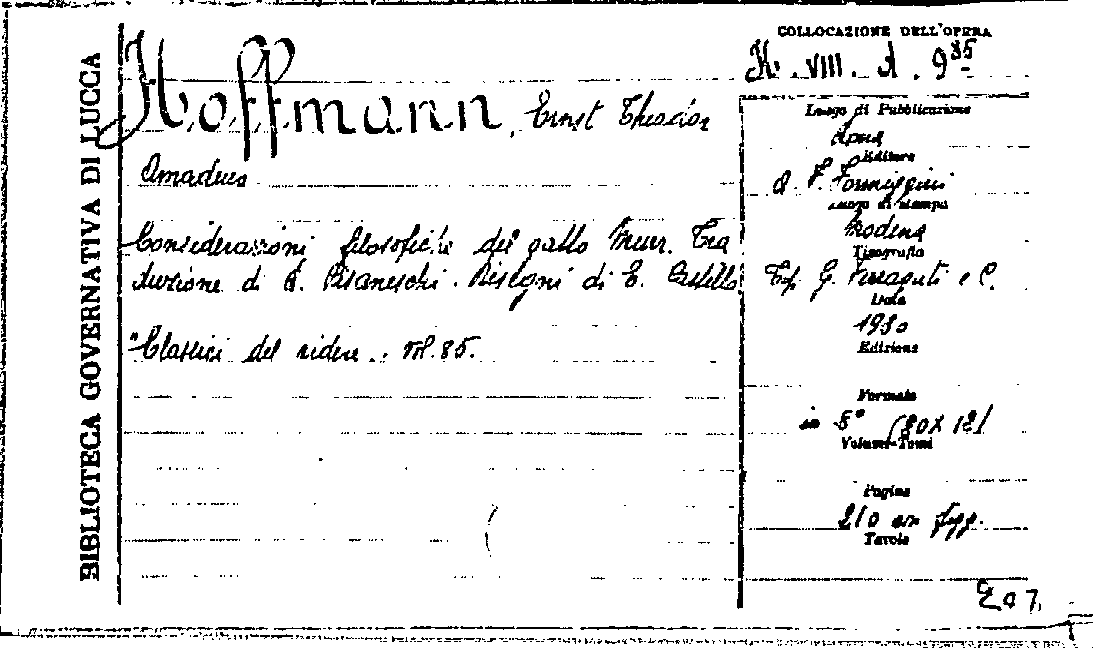 BIBLIOTECA GOVERNATIVA DI LUCCA
Hoffmann, Ernst Theodor
Amadeus
Considerazioni filosofiche del gatto Murr. Tra
duzione di Pisaneschi. Disegni di E. Castello
"Classici del ridere. n. 85.
COLLOCAZIONE DELL'OPERA
VIII. d. 985
Luogo di Pubblicazione
Roma
Editore
A. F. Formiggini
Luogo di stampa
Modena
Tipografia
Tip. G. Ferraguti e C.
Data
1930
Edizione
Formato
in 8° (20x12)
Volumi-Tomi
Pagine
210 con figg.
Tavole